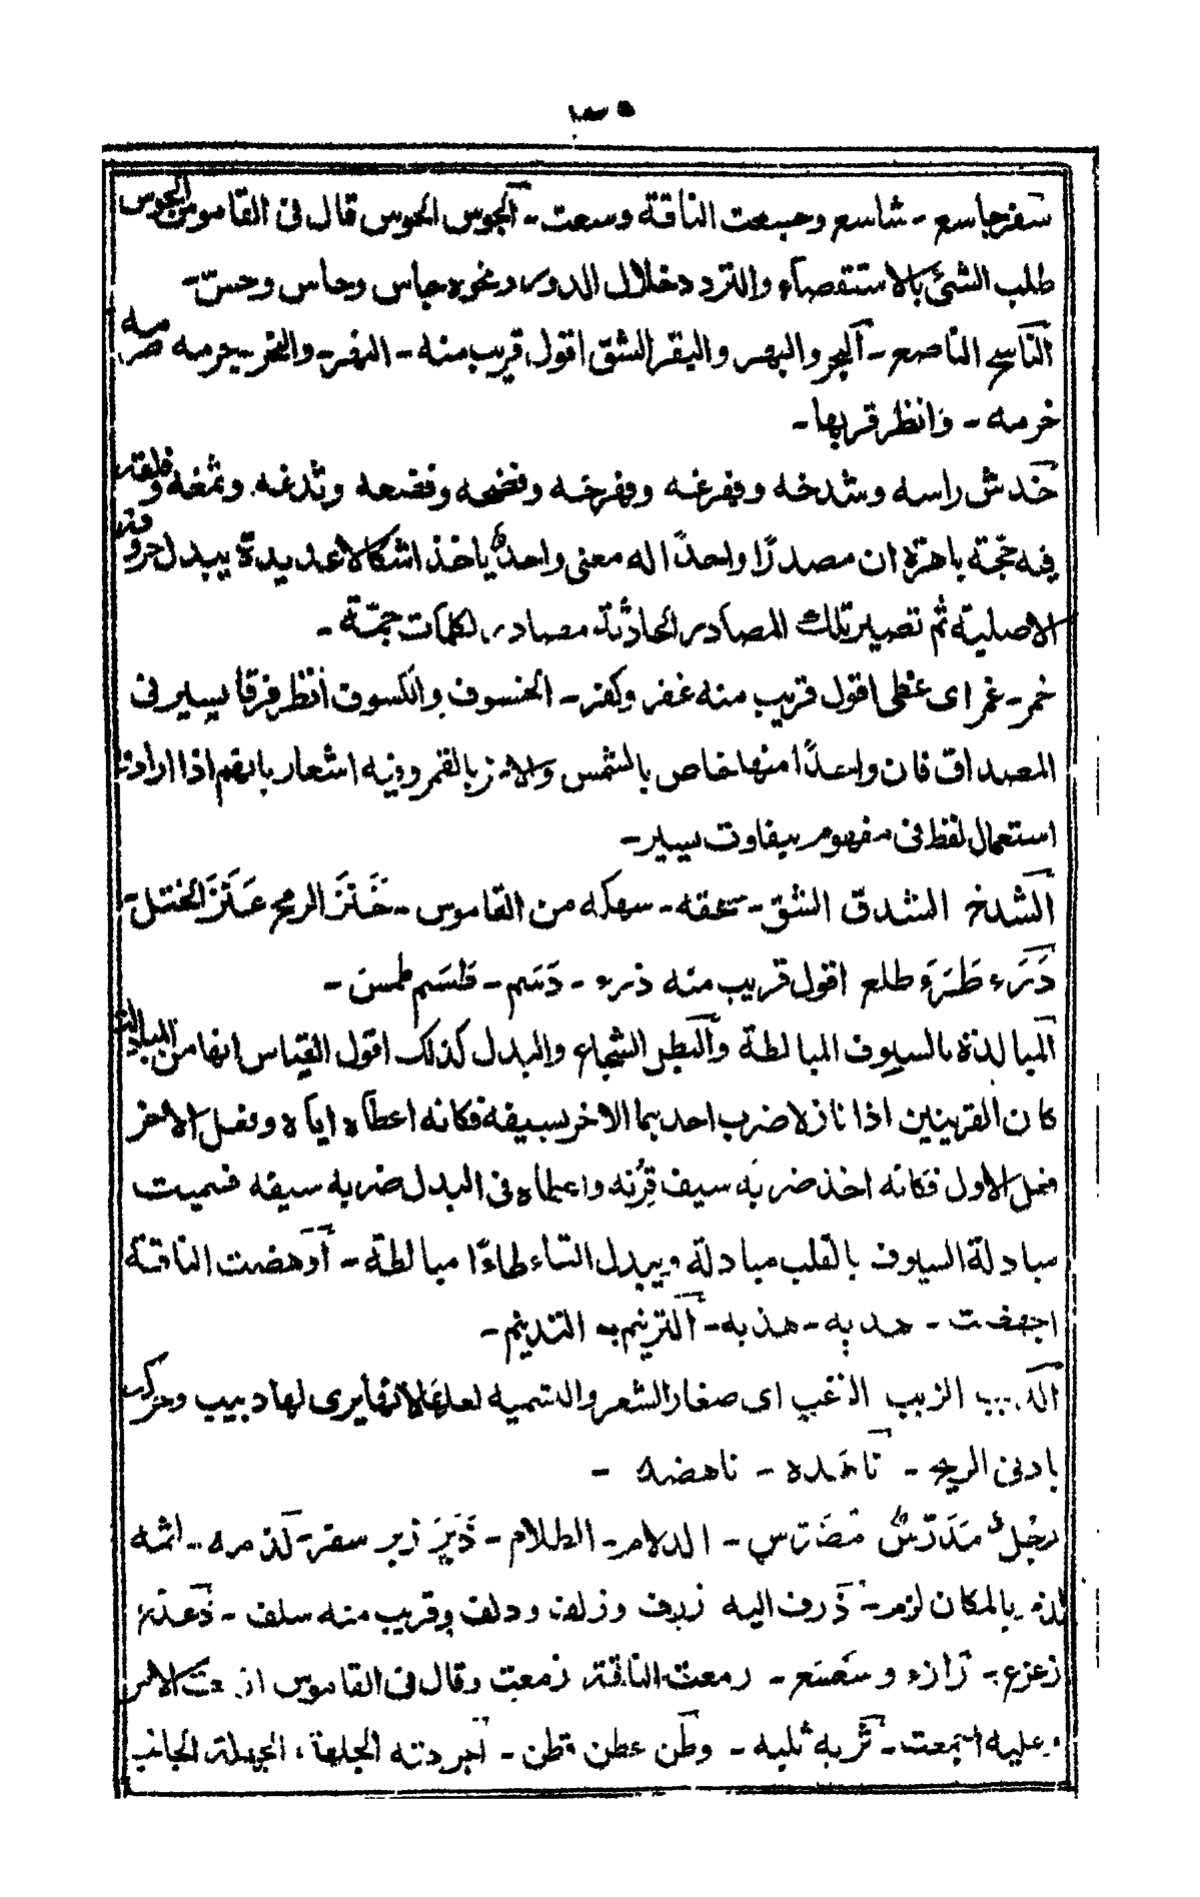 سفر جاسع - شاسع وجسعت الناقة وسعت - الجوس الحوس قال فى القاموس الجوس
طلب الشئ بالاستقصاء والتردد خلال الدور ونحوه جاس وحاس وحسّ -
الناسح الناصع - البجر والبهر والبقر الشق اقول قريب منه - النهر - والنحر - جرمه صرمه
خرمه - وانظر قربها -
خدش راسه وشدخه وفرغه وفرخه وفضحه وفقعه وثدغه وثمغه وفلقه
فيه حجّة باهرة ان مصدرًا واحدًا له معنى واحدٌ ياخذ اشكالا عديدة يبدل حروفه
الاصلية ثم تصير تلك المصادر الحادثة مصادر لكلمات جمّة -
خمر - غمر اى غطى اقول قريب منه غفر وكفر - الخسوف والكسوف انظر فرقا يسير فى
المصداق فان واحدًا منها خاص بالشمس والاخر بالقمر وفيه اشعار بانهم اذا ارادوا
استعمال لفظ فى مفهوم بتفاوت يسير -
الشدخ الشدق الشق - سحقه - سهكه من القاموس - خَنَزَ الرمح عَنَزَ الختل -
دَرَء طَرَء طلع اقول قريب منه ذرء - دَسَم - طَسَم طمس -
المبالذة بالسيوف المبالطة والبطل الشجاع والبدل كذلك اقول القياس انها من المبادلة
كان القرينين اذا نازلا ضرب احدهما الاخر بسيفه فكانه اعطاه اياه وفعل الاخر
فعل الاول فكانه اخذ ضربَه سيف قِرْنه واعطاه فى البدل ضربه سيفه فسميت
مبادلة السيوف بالقلب مبادلة ويبدل التاء طاءًا مبالطة - اوهضت الناقة
اجهضت - هدبه - هذبه - الترنيم - التدثيم -
الدبب الزبب الزغب اى صغار الشعر والتسمية لعلها لانها يرى لها دبيب وحركت
بادنى الريح - ناهده - ناهضه -
رجُلٌ مَدَرّسٌ مُضَرّس - الدلام - الظلام - ذَبَرَ زبر سفر - لذمه - اثمه
لذم بالمكان لزم - ذرف اليه زرف وزلف ودلف وقريب منه سلف - ذعذع
زعزع - زازء وسَعسَع - رمعت الناقة زمعت وقال فى القاموس ازمعت الامر
وعليه اجمعت - ثربه ثلبه - وطن عطن قطن - اجردته الجلهة، الجهلة الجانب